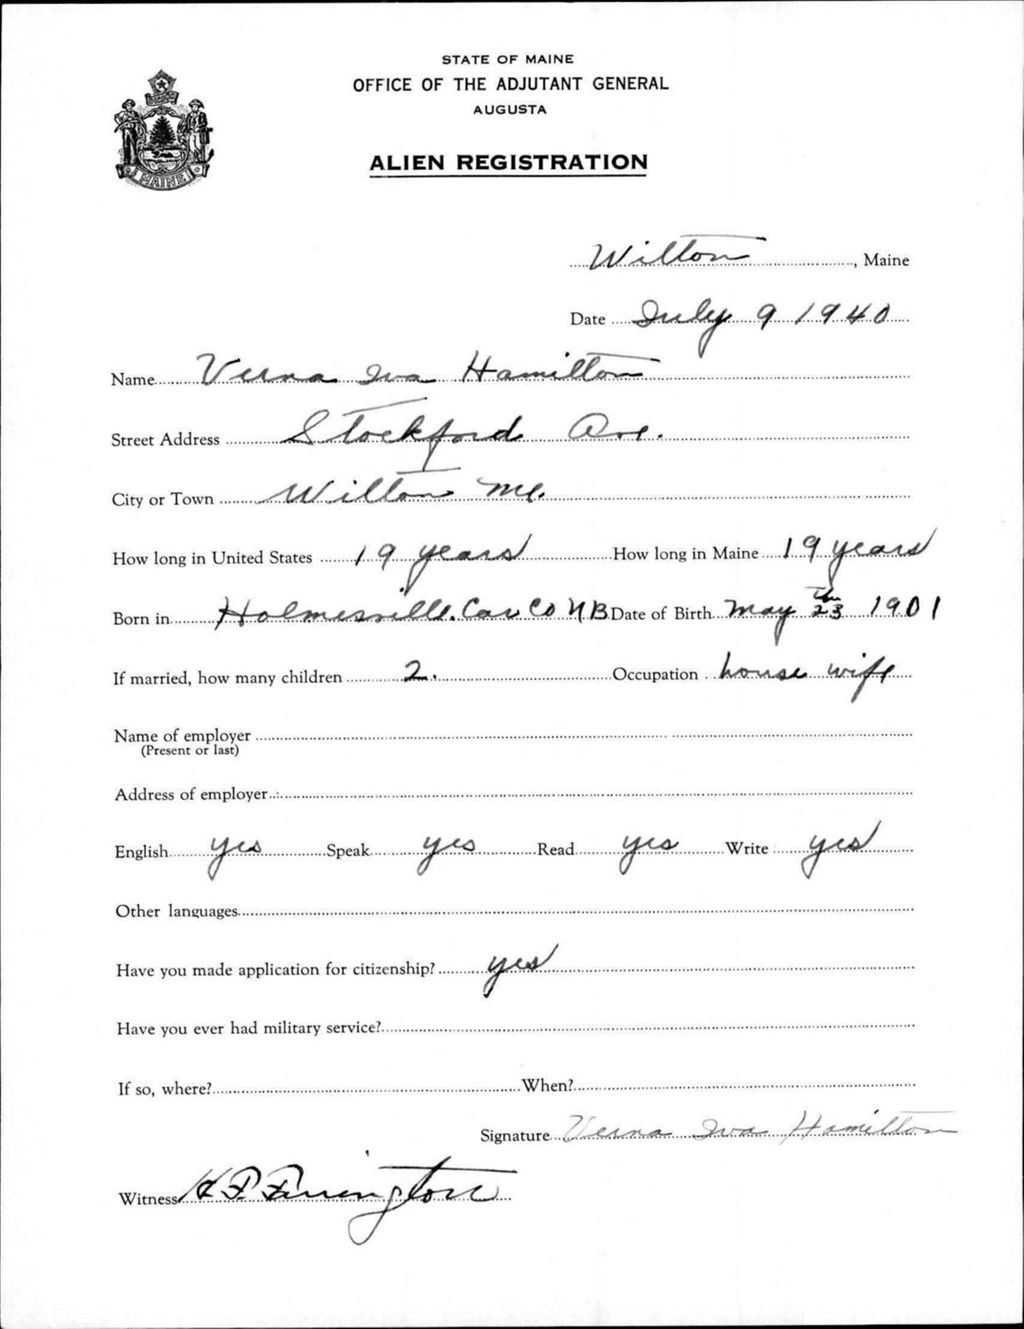 STATE OF MAINE
OFFICE OF THE ADJUTANT GENERAL
AUGUSTA
ALIEN REGISTRATION
MAINE
Wilton, Maine
Date July 9 1940
Name Verna Iva Hamilton
Street Address Stockford Ave.
City or Town Wilton Me.
How long in United States 19 years How long in Maine 19 years
Born in Holmesville. Car Co NB Date of Birth May 23 1901
If married, how many children 2. Occupation house wife
Name of employer
(Present or last)
Address of employer
English yes Speak yes Read yes Write yes
Other languages
Have you made application for citizenship? yes
Have you ever had military service?
If so, where? When?
Signature Verna Iva Hamilton
Witness H P Farrington